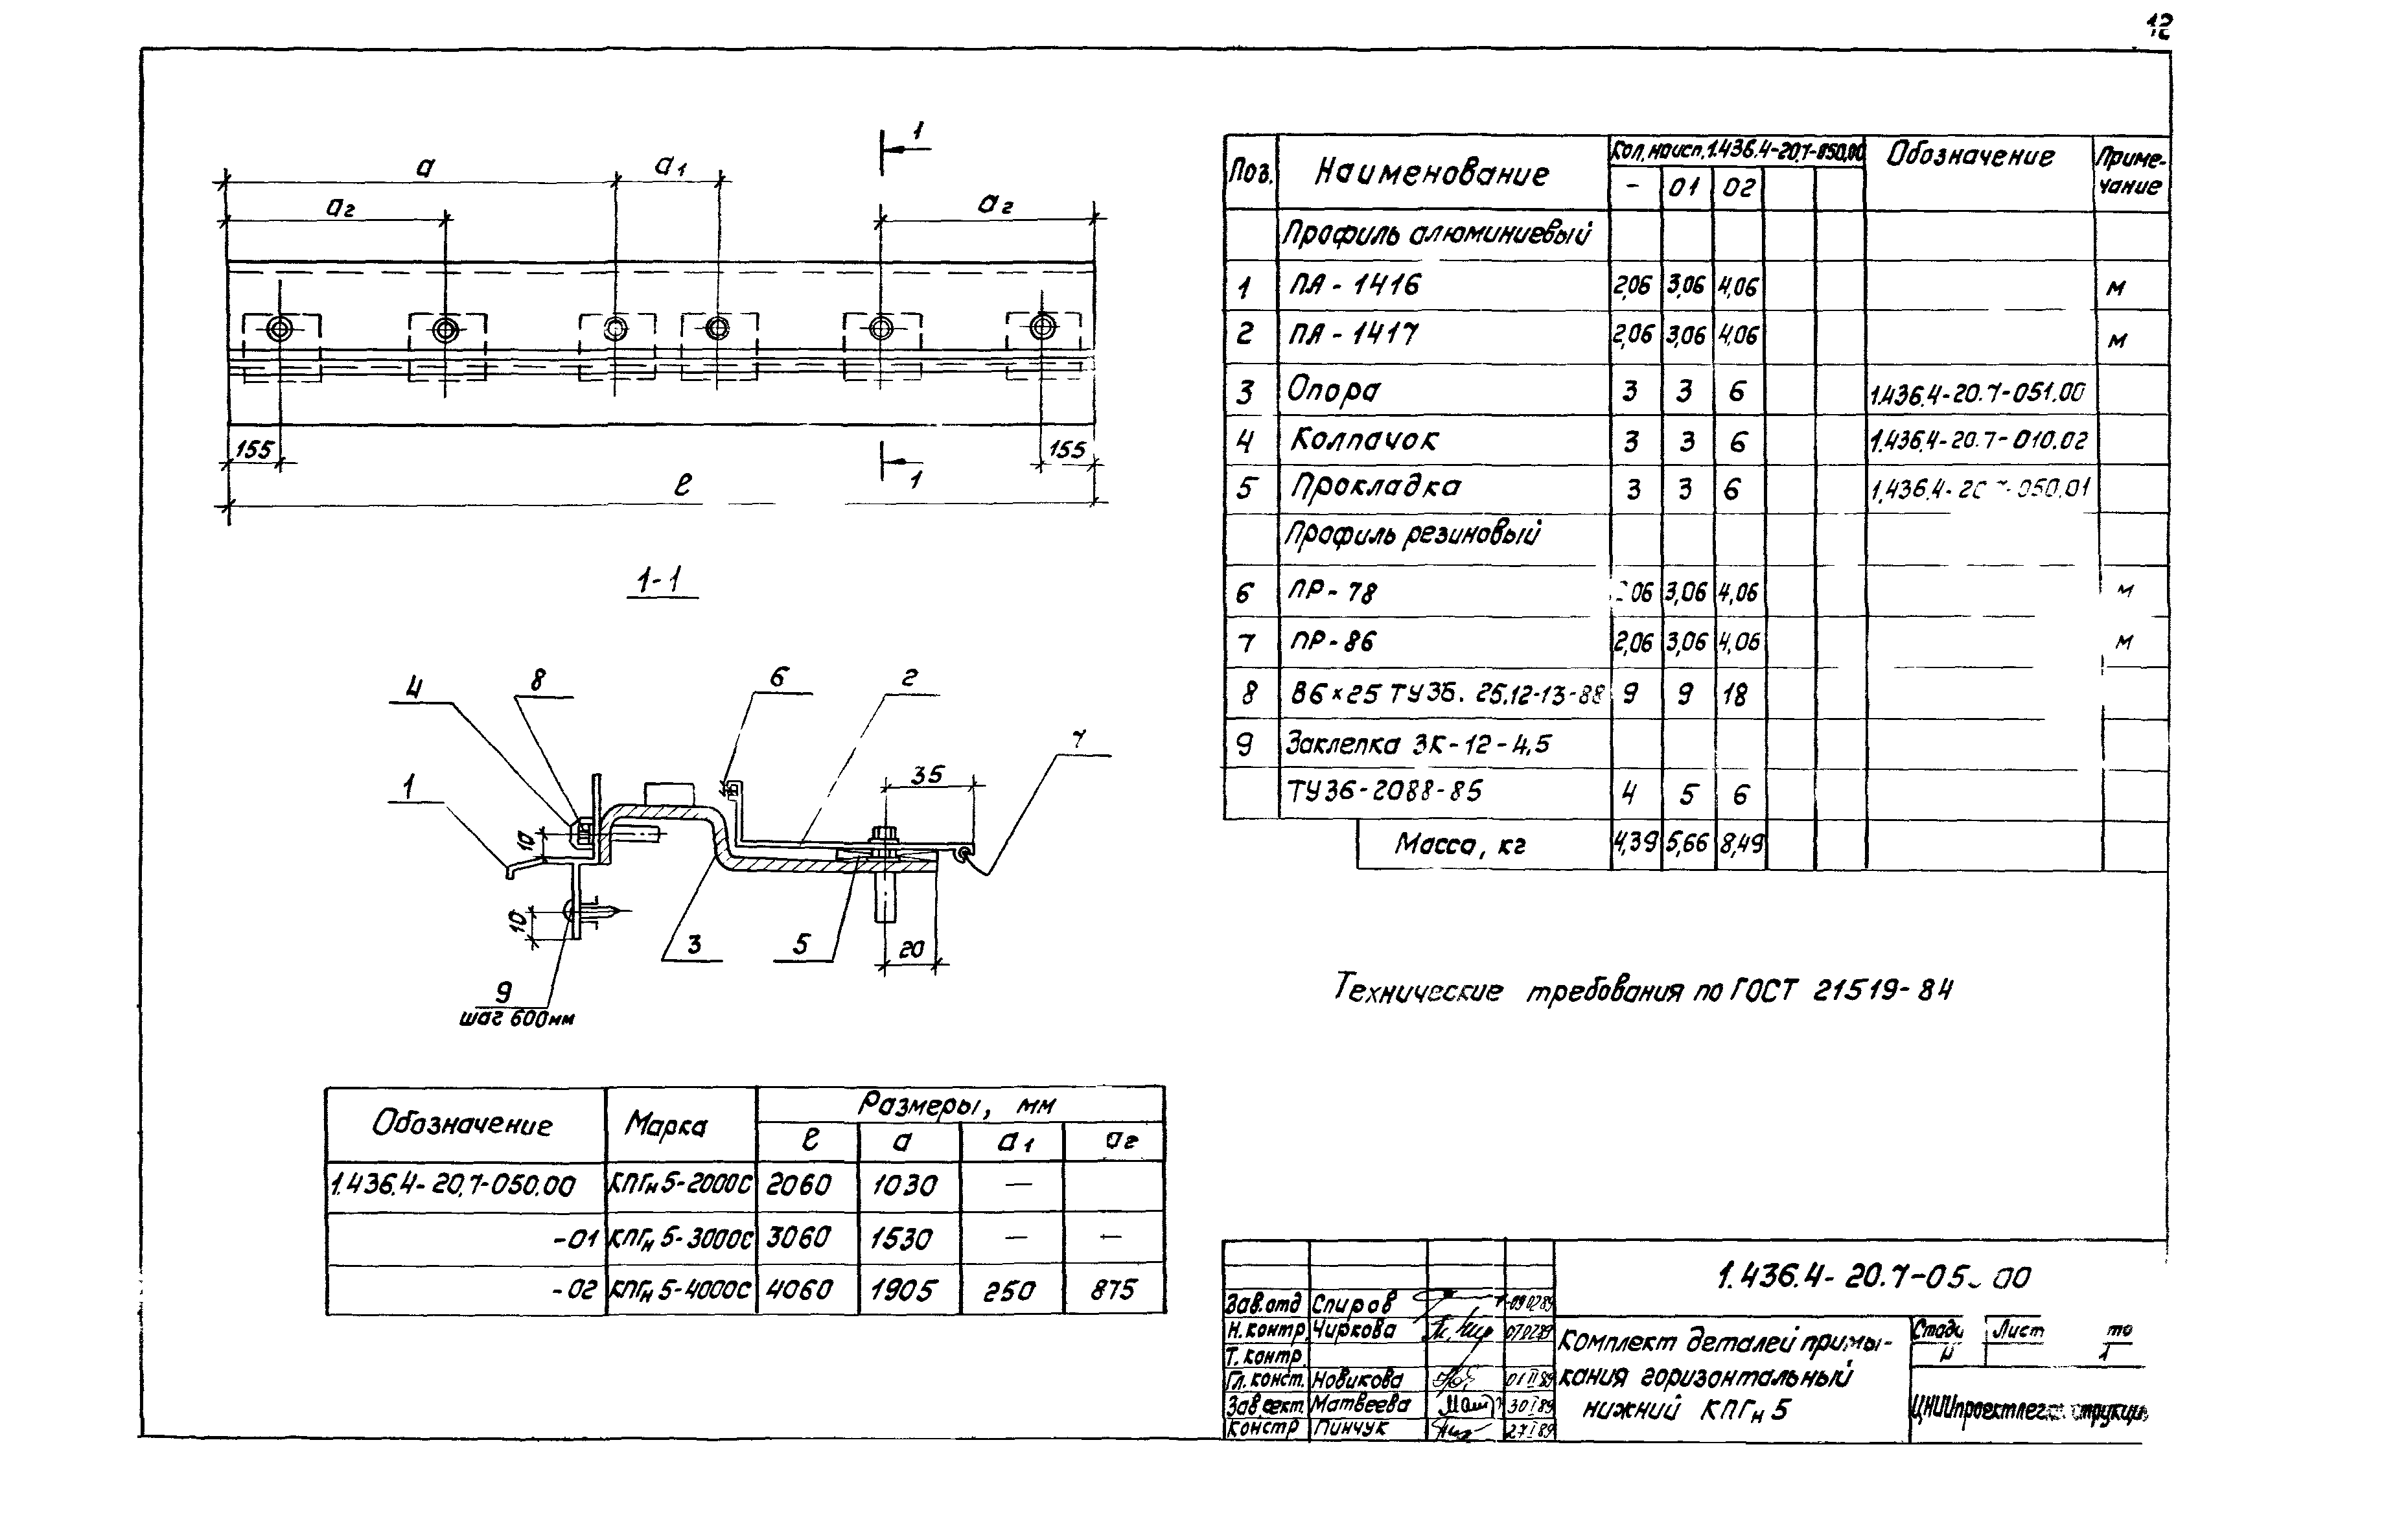 12
a
a1
1
a2
a2
155
155
1
l
1-1
4
8
6
2
7
1
35
10
10
3
5
20
9
шаг 600мм
Поз. Наименование Кол. на исп. 1.436.4-20.7-050.00 Обозначение Приме-
- 01 02 чание
Профиль алюминиевый
1 ПА-1416 2,06 3,06 4,06 м
2 ПА-1417 2,06 3,06 4,06 м
3 Опора 3 3 6 1.436.4-20.7-051.00
4 Колпачок 3 3 6 1.436.4-20.7-010.02
5 Прокладка 3 3 6 1.436.4-20.7-050.01
Профиль резиновый
6 ПР-78 06 3,06 4,06 м
7 ПР-86 2,06 3,06 4,06 м
8 В6×25 ТУ36.25.12-13-88 9 9 18
9 Заклепка ЗК-12-4,5
ТУ36-2088-85 4 5 6
Масса, кг 4,39 5,66 8,49
Технические требования по ГОСТ 21519-84
Обозначение Марка Размеры, мм
l a a1 a2
1.436.4-20.7-050.00 КПГн5-2000С 2060 1030 —
-01 КПГн5-3000С 3060 1530 — —
-02 КПГн5-4000С 4060 1905 250 875
1.436.4-20.7-05 00
Зав.отд Спиров 09.02.89
Н.контр. Чиркова 07.02.89
Т.контр.
Гл.конст. Новикова 01.II.89
Зав.сект. Матвеева 30.I.89
Констр Пинчук 27.I.89
Комплект деталей примы-
кания горизонтальный
нижний КПГн5
Стади Лист
1